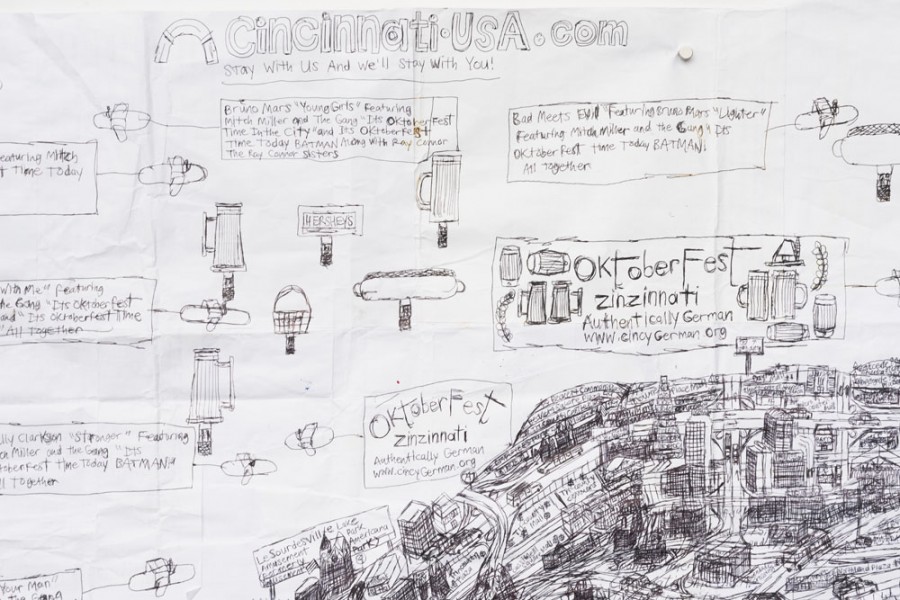 Cincinnati·USA.com
Stay With Us And we'll Stay With You!
Bruno Mars "Young Girls" Featuring
Mitch Miller and The Gang "Its Oktoberfest
Time In the City" and Its Oktoberfest
Time Today BATMAN Along With Ray Connar
The Ray Connar Sisters
Bad Meets Evil "Featuring Bruno Mars "Lighter"
Featuring Mitch Miller and the Gang" Its
Oktoberfest time Today BATMAN!
All Together
eaturing Mitch
t Time Today
HERSHEYS
OktoberFest
zinzinnati
Authentically German
www.cincyGerman.org
With Me" Featuring
he Gang "Its Oktoberfest
and" Its Oktoberfest Time
"All Together
OktoberFest
zinzinnati
Authentically German
www.cincyGerman.org
lly Clarkson "Stronger" Featuring
ch Miller and the Gang "Its
toberfest time Today BATMAN!"
ll Together
LeSourdesville Lake
Amusement
Park
Americana
Park
Your Man"